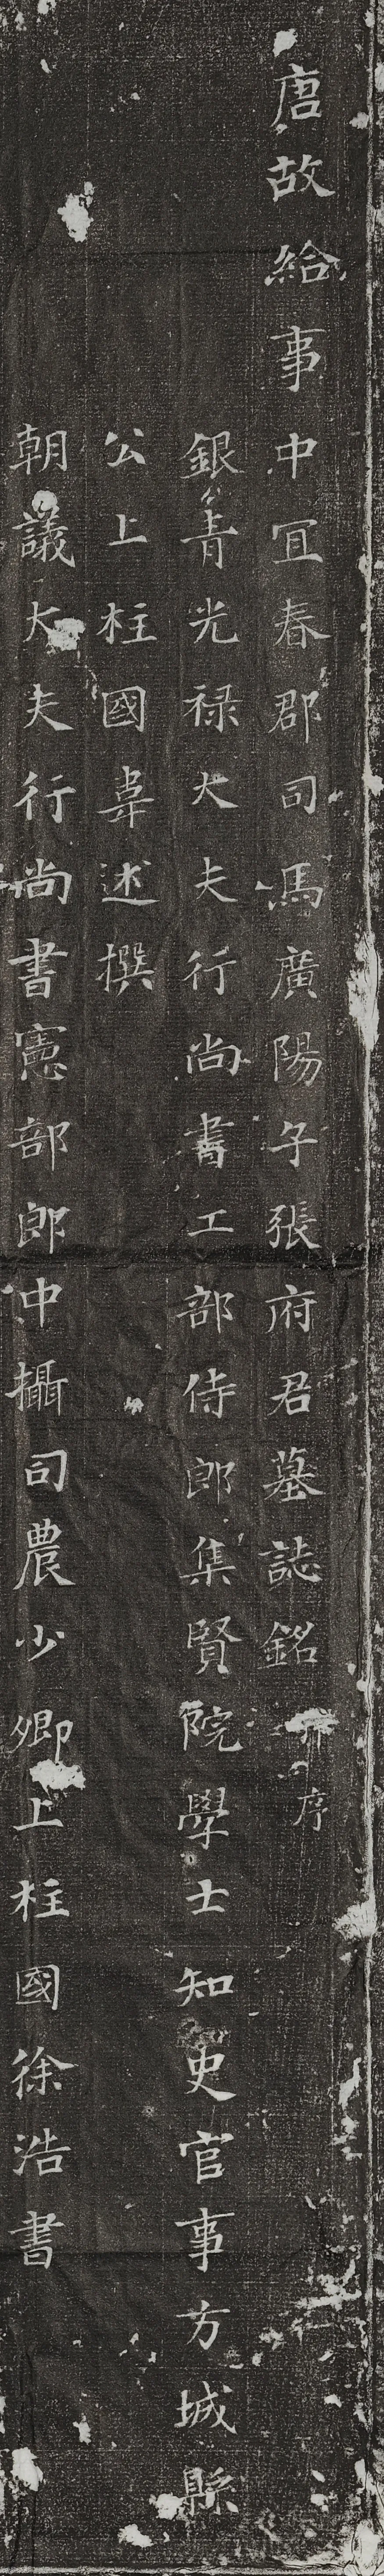 唐故給事中冝春郡司馬廣陽子張府君墓誌銘并序
銀青光禄大夫行尚書工部侍郎集賢院學士知史官事方城縣
公上柱國韋述撰
朝議大夫行尚書憲部郎中攝司農少卿上柱國徐浩書